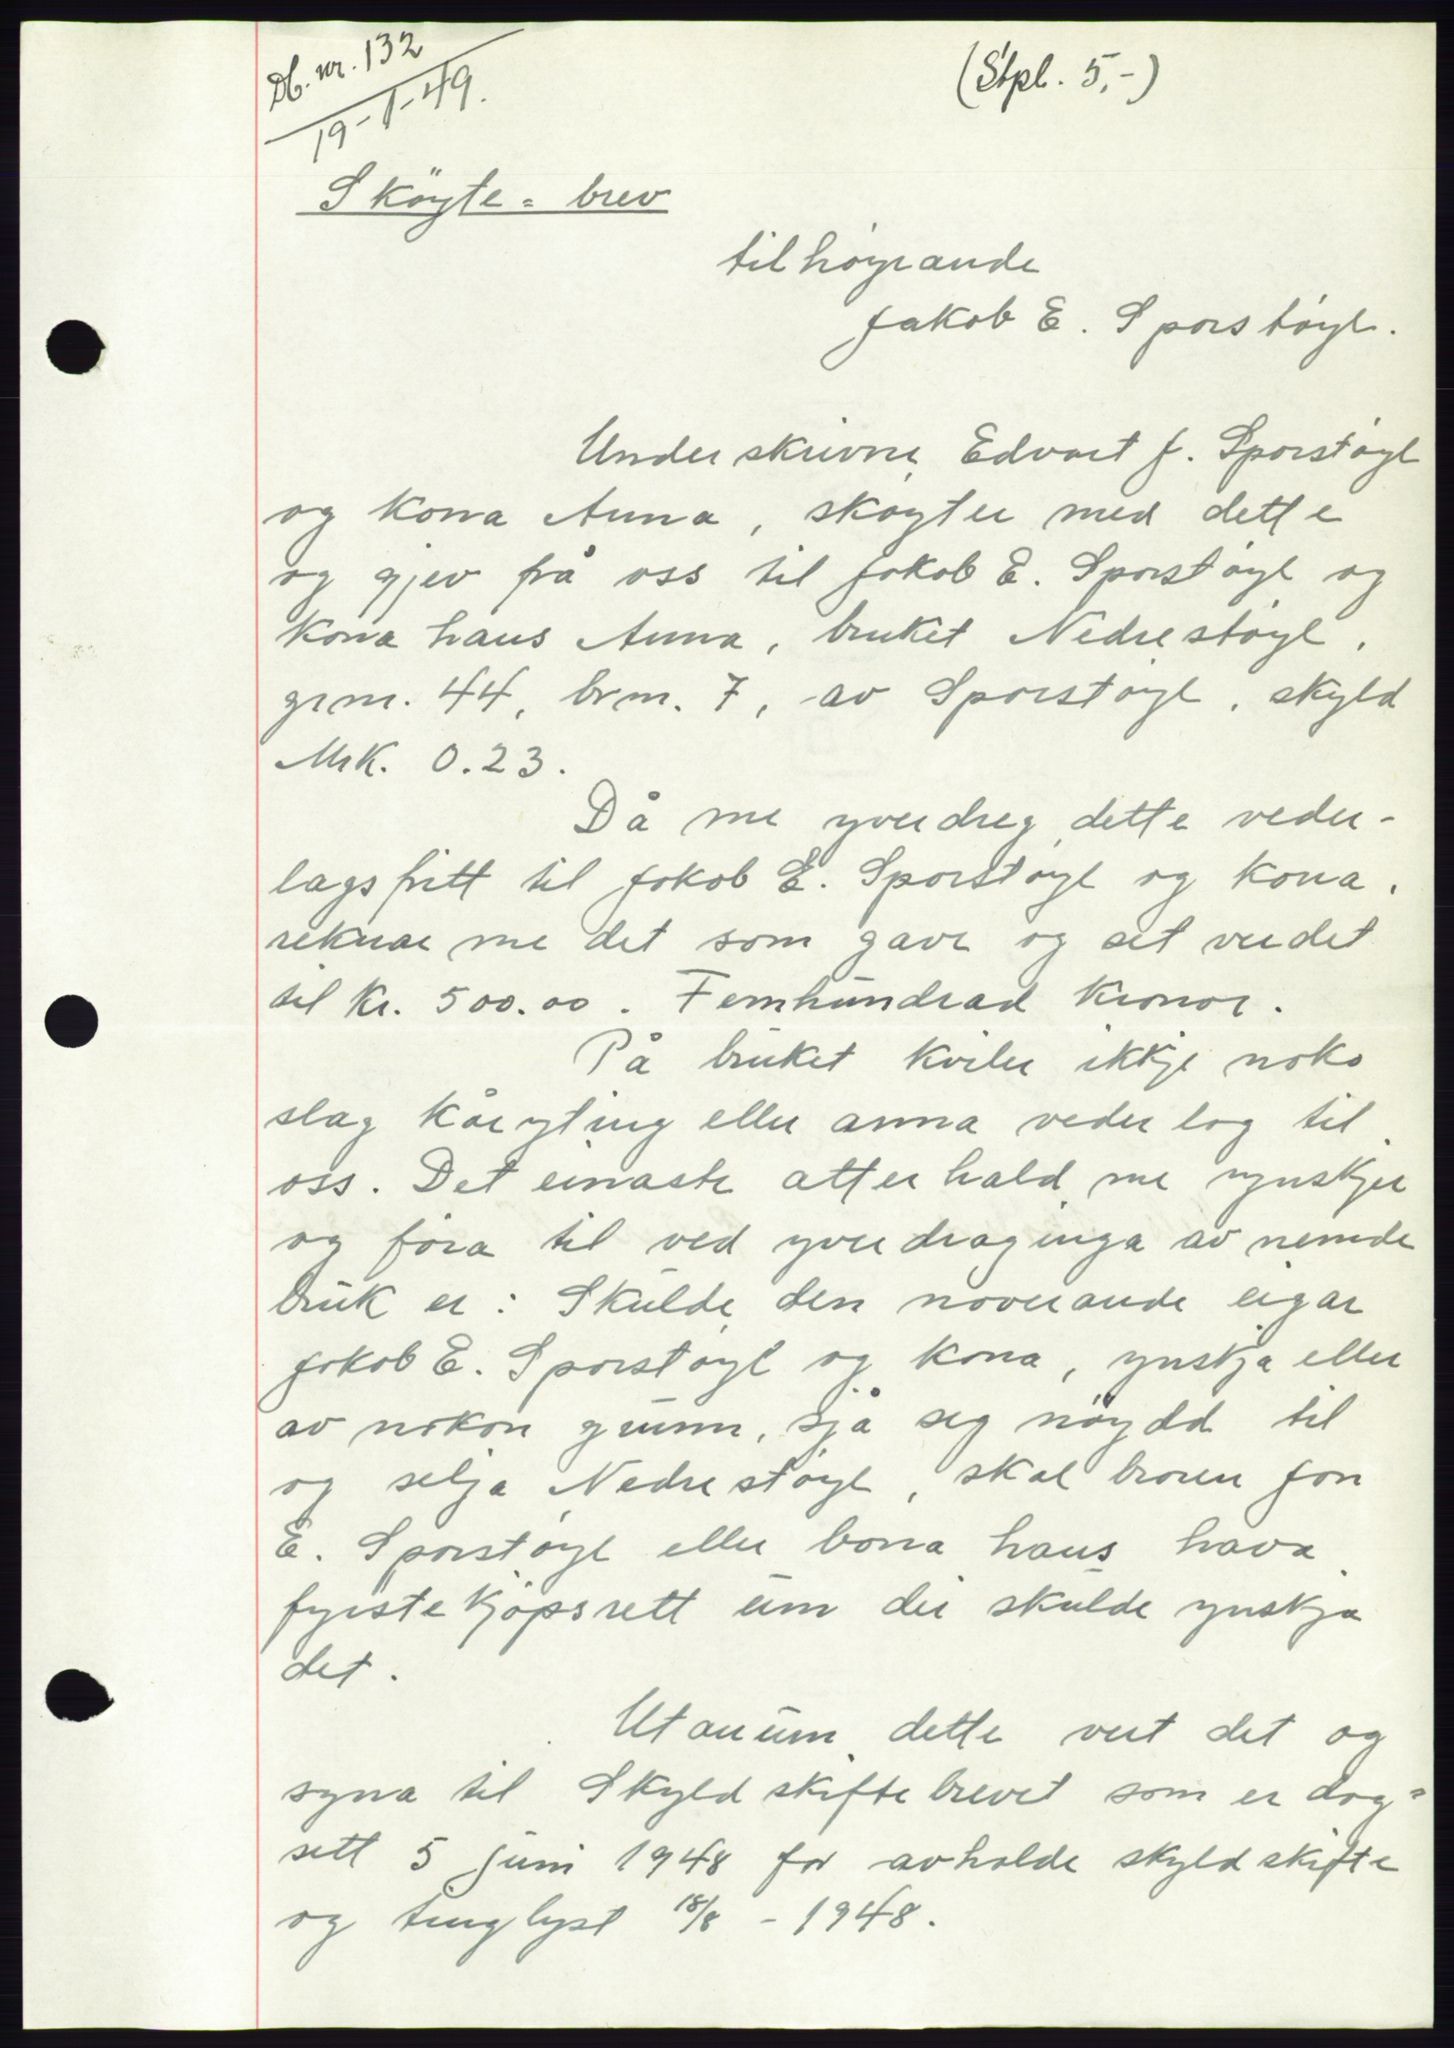 Db. nr. 132
19-1-49.
(Stpl. 5,-)
Sköyte = brev
tilhøyrande
Jakob E. Sporstøyl.
Underskrivne Edvart J. Sporstøyl
og kona Anna, skøyter med dette
og gjev frå oss til Jakob E. Sporstøyl og
kona hans Anna, bruket Nedrestøyl,
grnr. 44, brnr. 7, av Sporstøyl, skyld
Mrk. 0.23.
Då me yverdreg dette veder-
lagsfritt til Jakob E. Sporstøyl og kona,
reknar me det som gave og set verdet
til kr. 500.00. Femhundrad kronor.
På bruket kviler ikkje noko
slag kåryting eller anna vederlag til
oss. Det einaste atterhald me ynskjer
og føra til ved yverdraginga av nemde
bruk er: Skulde den noverande eigar
Jakob E. Sporstøyl og kona, ynskja eller
av nokon grunn, sjå seg nøydd til
og selja Nedrestøyl, skal broren Jon
E. Sporstøyl eller borna hans hava
fyrstekjøpsrett um dei skulde ynskja
det.
Utanum dette vert det og
syna til Skyldskiftebrevet som er dag=
sett 5 juni 1948 for avholde skyldskifte
og tinglyst 18/8 - 1948.